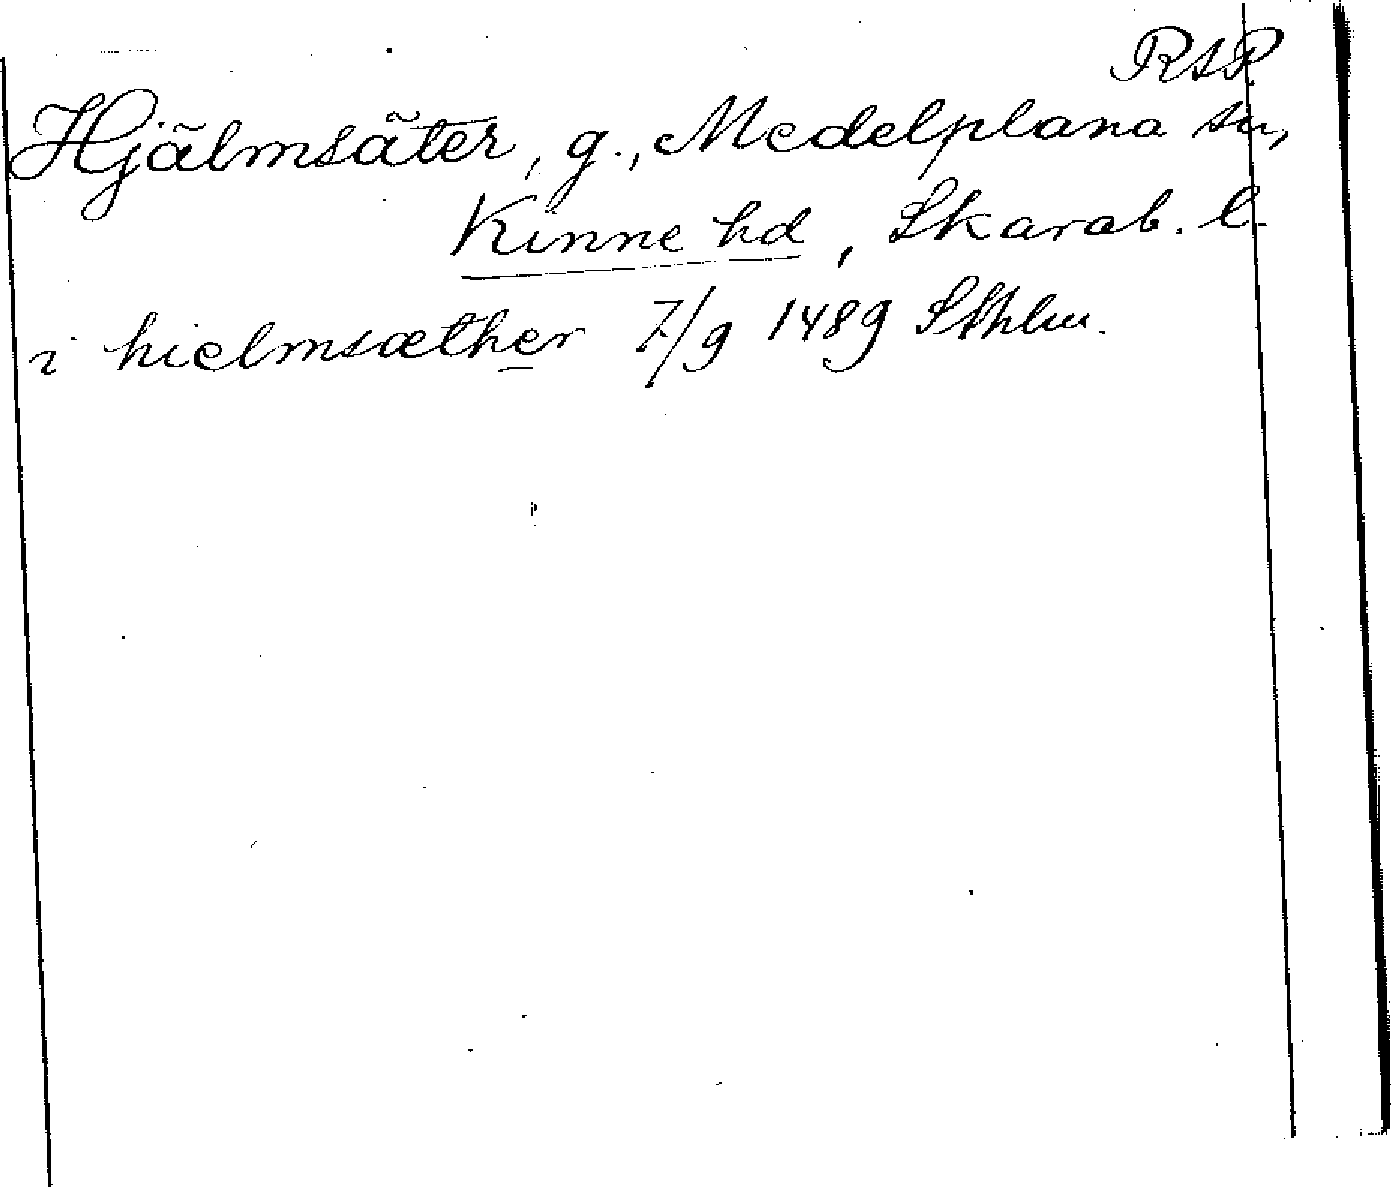 RAP.
Hjälmsäter, g., Medelplana sn,
Kinne hd, Skarab. l.
i hielmsæther 7/9 1489 Sthlm.